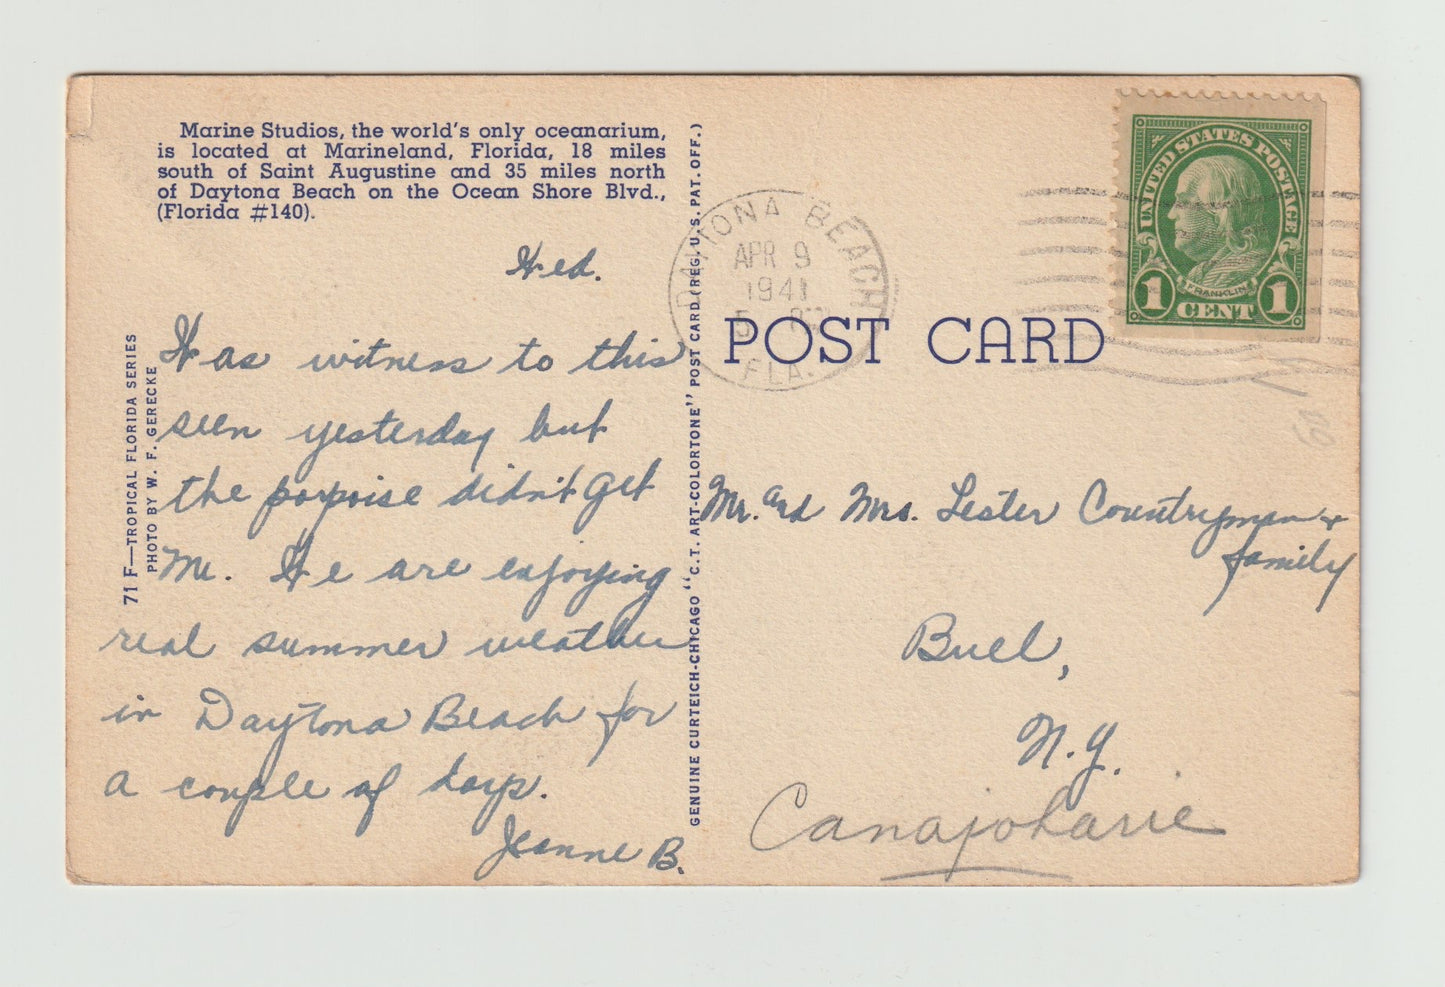 Marine Studios, the world's only oceanarium,
is located at Marineland, Florida, 18 miles
south of Saint Augustine and 35 miles north
of Daytona Beach on the Ocean Shore Blvd.,
(Florida #140).
Wed.
Was witness to this
seen yesterday but
the porpoise didn't get
me. We are enjoying
real summer weather
in Daytona Beach for
a couple of days.
Jeanne B.
71 F—TROPICAL FLORIDA SERIES
PHOTO BY W. F. GERECKE
GENUINE CURTEICH-CHICAGO "C. T. ART-COLORTONE" POST CARD (REG. U. S. PAT. OFF.)
DAYTONA BEACH
APR 9
1941
5
FLA.
UNITED STATES POSTAGE
FRANKLIN
1 CENT 1
POST CARD
Mr. and Mrs. Lester Countryman +
family
Buel,
N.Y.
Canajoharie